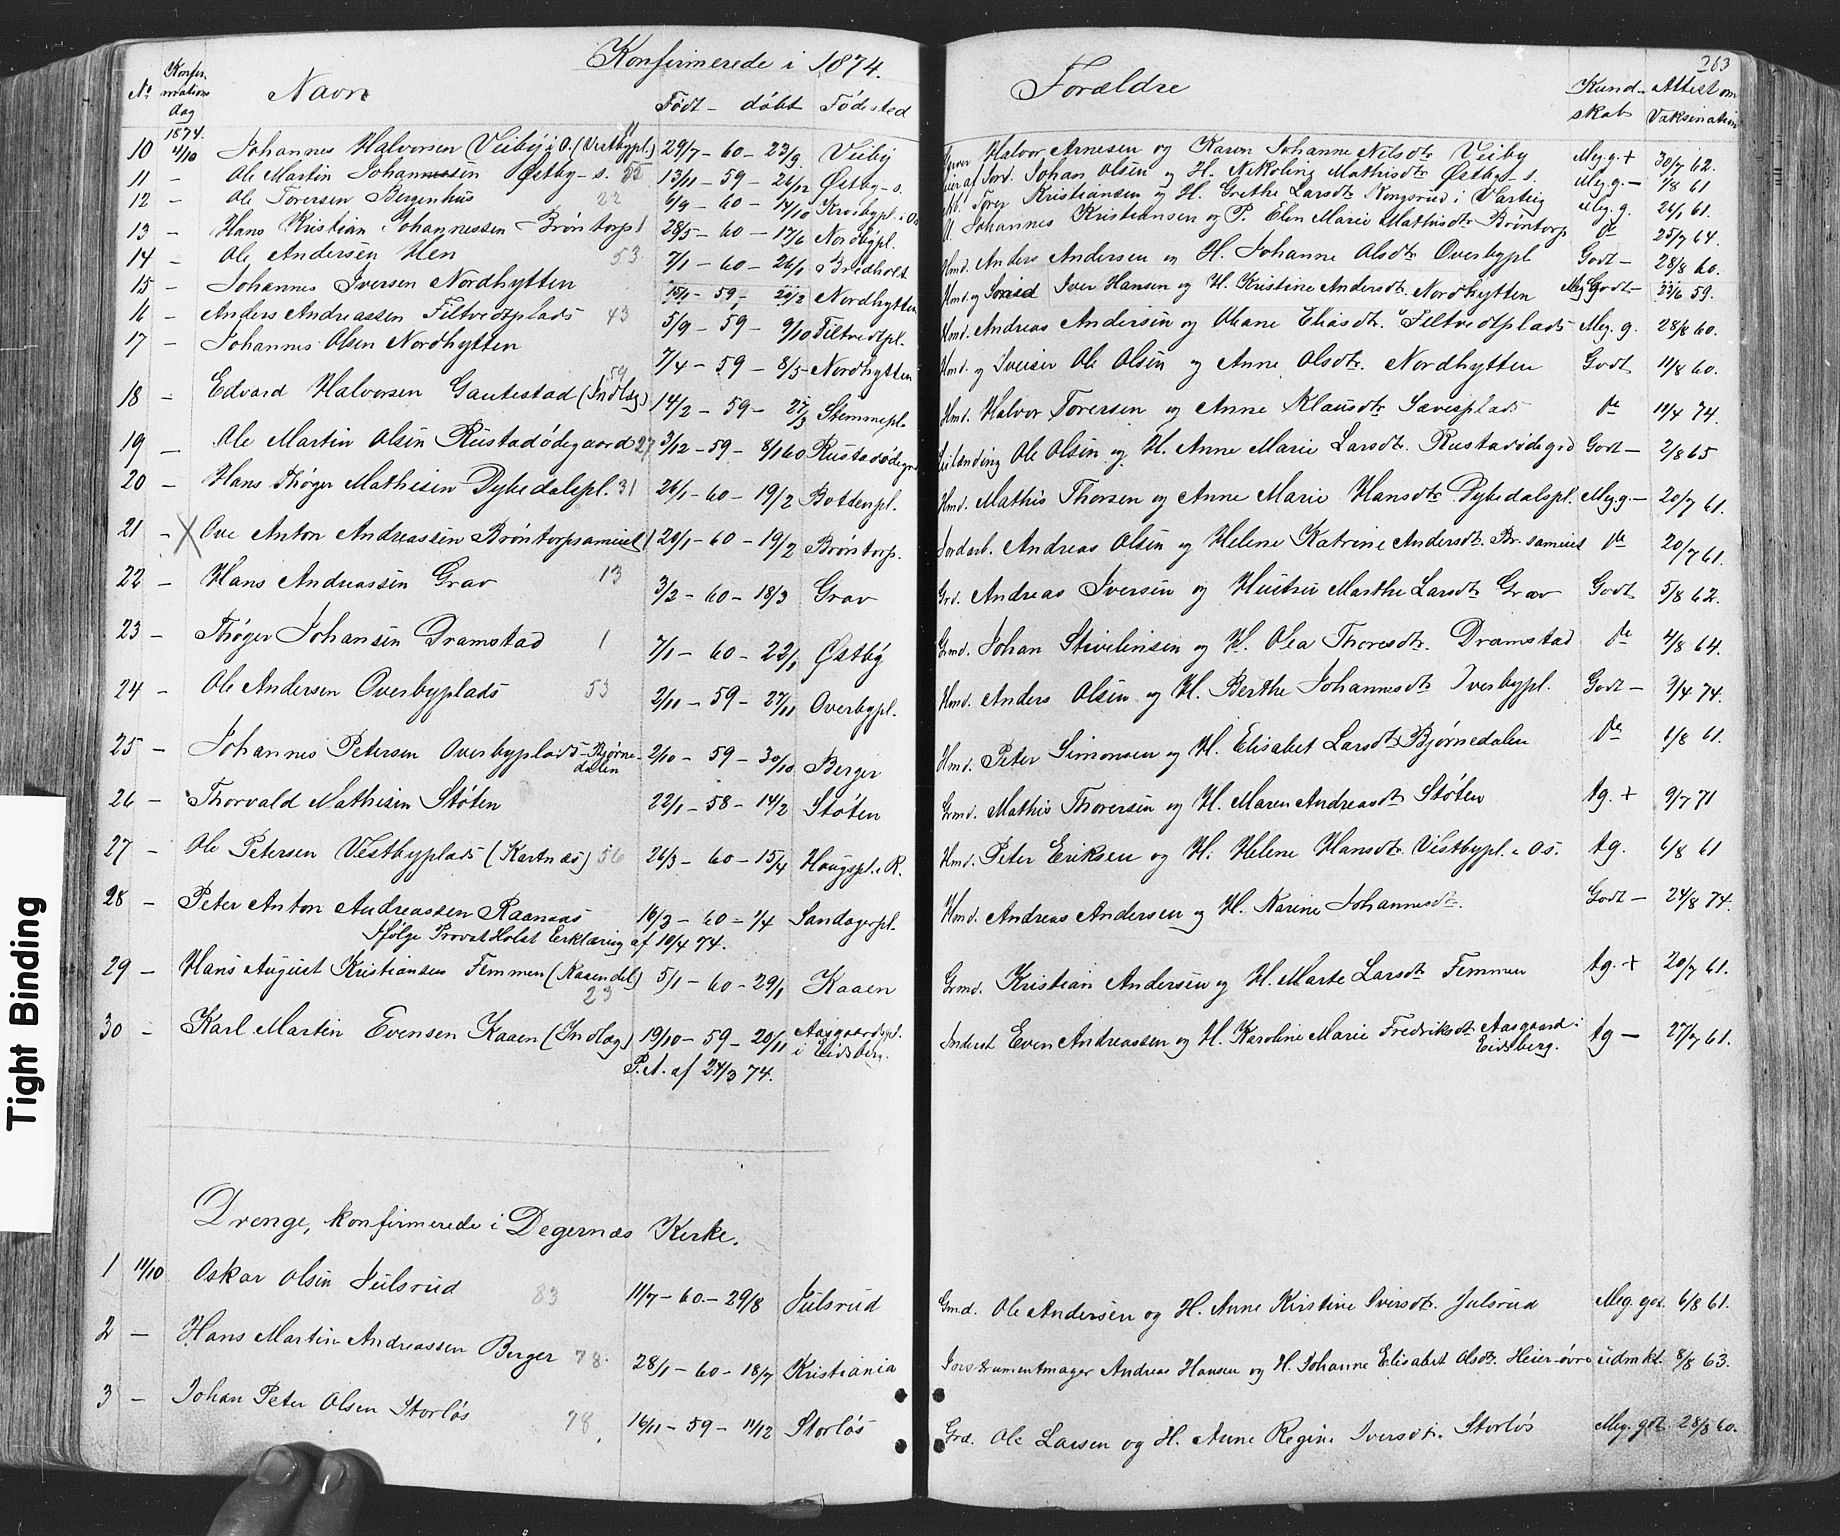 Konfirmerede i 1874.
263
No Konfirmations dag Navn Født – døbt Fødested Forældre Kundskab Attest om Vaksination
1874.
10 4/10 Johannes Halvorsen Veiby i O. (Vestbypl.) 29/7 – 60 – 23/9 Veiby Halvor Arnesen og Karen Johanne Nilsdtr Veiby Meg. g. + 30/7 62.
11 – Ole Martin Johannessen Østby – s. 55 13/11 – 59 – 26/12 Østby – s. Johan Olsen og H. Nikoline Mathisdtr Østby – s. Meg. g. – 7/8 61
12 – Ole Torersen Bergenhus 22 6/9 – 60 – 14/10 Krosbypl. i Os Torer Kristiansen og H. Grethe Larsdtr Kongsrud i Varteig Meg. g. 26/1 61.
13 – Hans Kristian Johannessen Brøntorp 1 28/5 – 60 – 17/6 Nordbypl. Johannes Kristiansen og P. Elen Marie Mathisdtr Brøntorp do 25/7 64.
14 – Ole Andersen Hen 53 7/1 – 60 – 26/1 Bredholt Hmd. Anders Andersen og H. Johanne Olsdtr Overbypl Godt – 28/8 60.
15 – Johannes Iversen Nordhytten 15/1 – 59 – 20/2 Nordhytten Hmd. og Iver Hansen og H. Kristine Andersdtr. Nordhytten Godt – 23/6 59.
16 – Anders Andreassen Tiltvedtplads 43 5/9 – 59 – 9/10 Tiltvedtpl. Hmd. Andreas Andersen og Oliane Eliasdtr. Tiltvedtplads Meg. g. 28/8 60.
17 – Johannes Olsen Nordhytten 7/4 – 59 – 8/5 Nordhytten Hmd. og Sveiser Ole Olsen og Anne Olsdtr. Nordhytten Godt 11/8 60.
18 – Edvard Halvorsen Gautestad (Indlæg) 59 14/2 – 59 – 27/3 Stemmepl. Hmd. Halvor Torersen og Anne Klausdtr Sævesplads do 11/4 74.
19 – Ole Martin Olsen Rustadødegaard 27 3/12 – 59 – 8/1 60 Rustadødegrd Leilænding Ole Olsen og H. Anne Marie Larsdtr. Rustadødegrd Godt – 2/8 65
20 – Hans Thøger Mathisen Dybedalspl. 31 26/1 – 60 – 19/2 Bottenpl. Hmd. Mathis Thorsen og Anne Marie Hansdtr Dybedalspl. Meg. g – 20/7 61.
21 – X Ove Anton Andreassen Brøntorpsameiet 1 20/1 – 60 – 19/2 Brøntorp. Jordarb. Andreas Olsen og Helene Katrine Andersdtr. Br. sameiet do 20/7 61.
22 – Hans Andreassen Grav 13 3/2 – 60 – 18/3 Grav Grd. Andreas Iversen og Hustru Marthe Larsdtr Grav Godt 5/8 62.
23 – Thøger Johansen Dramstad 1 7/1 – 60 – 22/1 Østby Grmd. Johan Stivelinsen og H. Olea Thoresdtr. Dramstad do 4/8 64.
24 – Ole Andersen Overbyplads 53 2/11 – 59 – 27/11 Overbypl. Hmd. Anders Olsen og H. Berthe Johannesdtr Overbypl. Godt – 9/4 74.
25 – Johannes Petersen Overbyplads – Bjørnedalen 2/10 – 59 – 30/10 Berger Hmd. Peter Simonsen og H. Elisabet Larsdtr Bjørnedalen do 1/8 61.
26 – Thorvald Mathisen Støten 22/1 – 58 – 14/2 Støten Grmd. Mathis Thorersen og H. Maren Andreasdtr Støten tg. + 9/7 71
27 – Ole Petersen Vestbyplads (Kartnæs) 56 26/3 – 60 – 15/4 Haugspl. i R. Hmd. Peter Eriksen og H. Helene Hansdtr. Vestbypl. i Os. tg. 6/8 61
28 – Peter Anton Andreassen Raanaas 16/3 – 60 – 7/4 Sandagerpl. Hmd. Andreas Andersen og H. Karine Johannesdtr. Godt – 24/8 74.
Ifølge Provst Holst Erklæring af 10/4 74.
29 – Hans August Kristiansen Femmen (Kaaendel) 23 5/1 – 60 – 29/1 Kaaen Grmd. Kristian Andersen og H. Marte Larsdtr Femmen tg. + 20/7 61.
30 – Karl Martin Evensen Kaaen (Indlæg) 19/10 – 59 – 20/11 Aasgaardspl. i Eidsberg. Inderst Even Andreassen og H. Karoline Marie Fredriksdtr Aasgaard i Eidsberg. tg – 27/7 61.
P.A. af 24/3 74.
Drenge, konfirmerede i Degernæs Kirke.
1 11/10 Oskar Olsen Julsrud 83 11/7 – 60 – 29/8 Julsrud Gmd. Ole Andersen og H. Anne Kirstine Iversdtr. Julsrud Meg. got 6/8 61.
2 – Hans Martin Andreassen Berger 78. 28/1 – 60 – 18/7 Kristiania Instrumentmager Andreas Hansen og H. Johanne Elisabet Olsdtr. Heier øvre udmkt. 8/8 63.
3 – Johan Peter Olsen Storløs 78. 16/11 – 59 – 11/12 Storløs Grd. Ole Larsen og H. Anne Regine Iversdtr. Storløs Meg. got 28/8 60.
Tight Binding